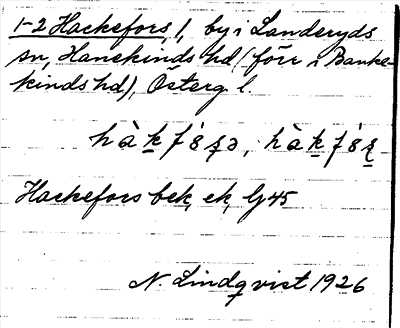 1-2 Hackefors, 1, by i Landeryds
sn, Hanekinds hd (förr i Banke-
kinds hd), Österg l.
hàkf'8șə, hàkf'8ș
Hackefors bek, ek, Gj45
N. Lindqvist 1926